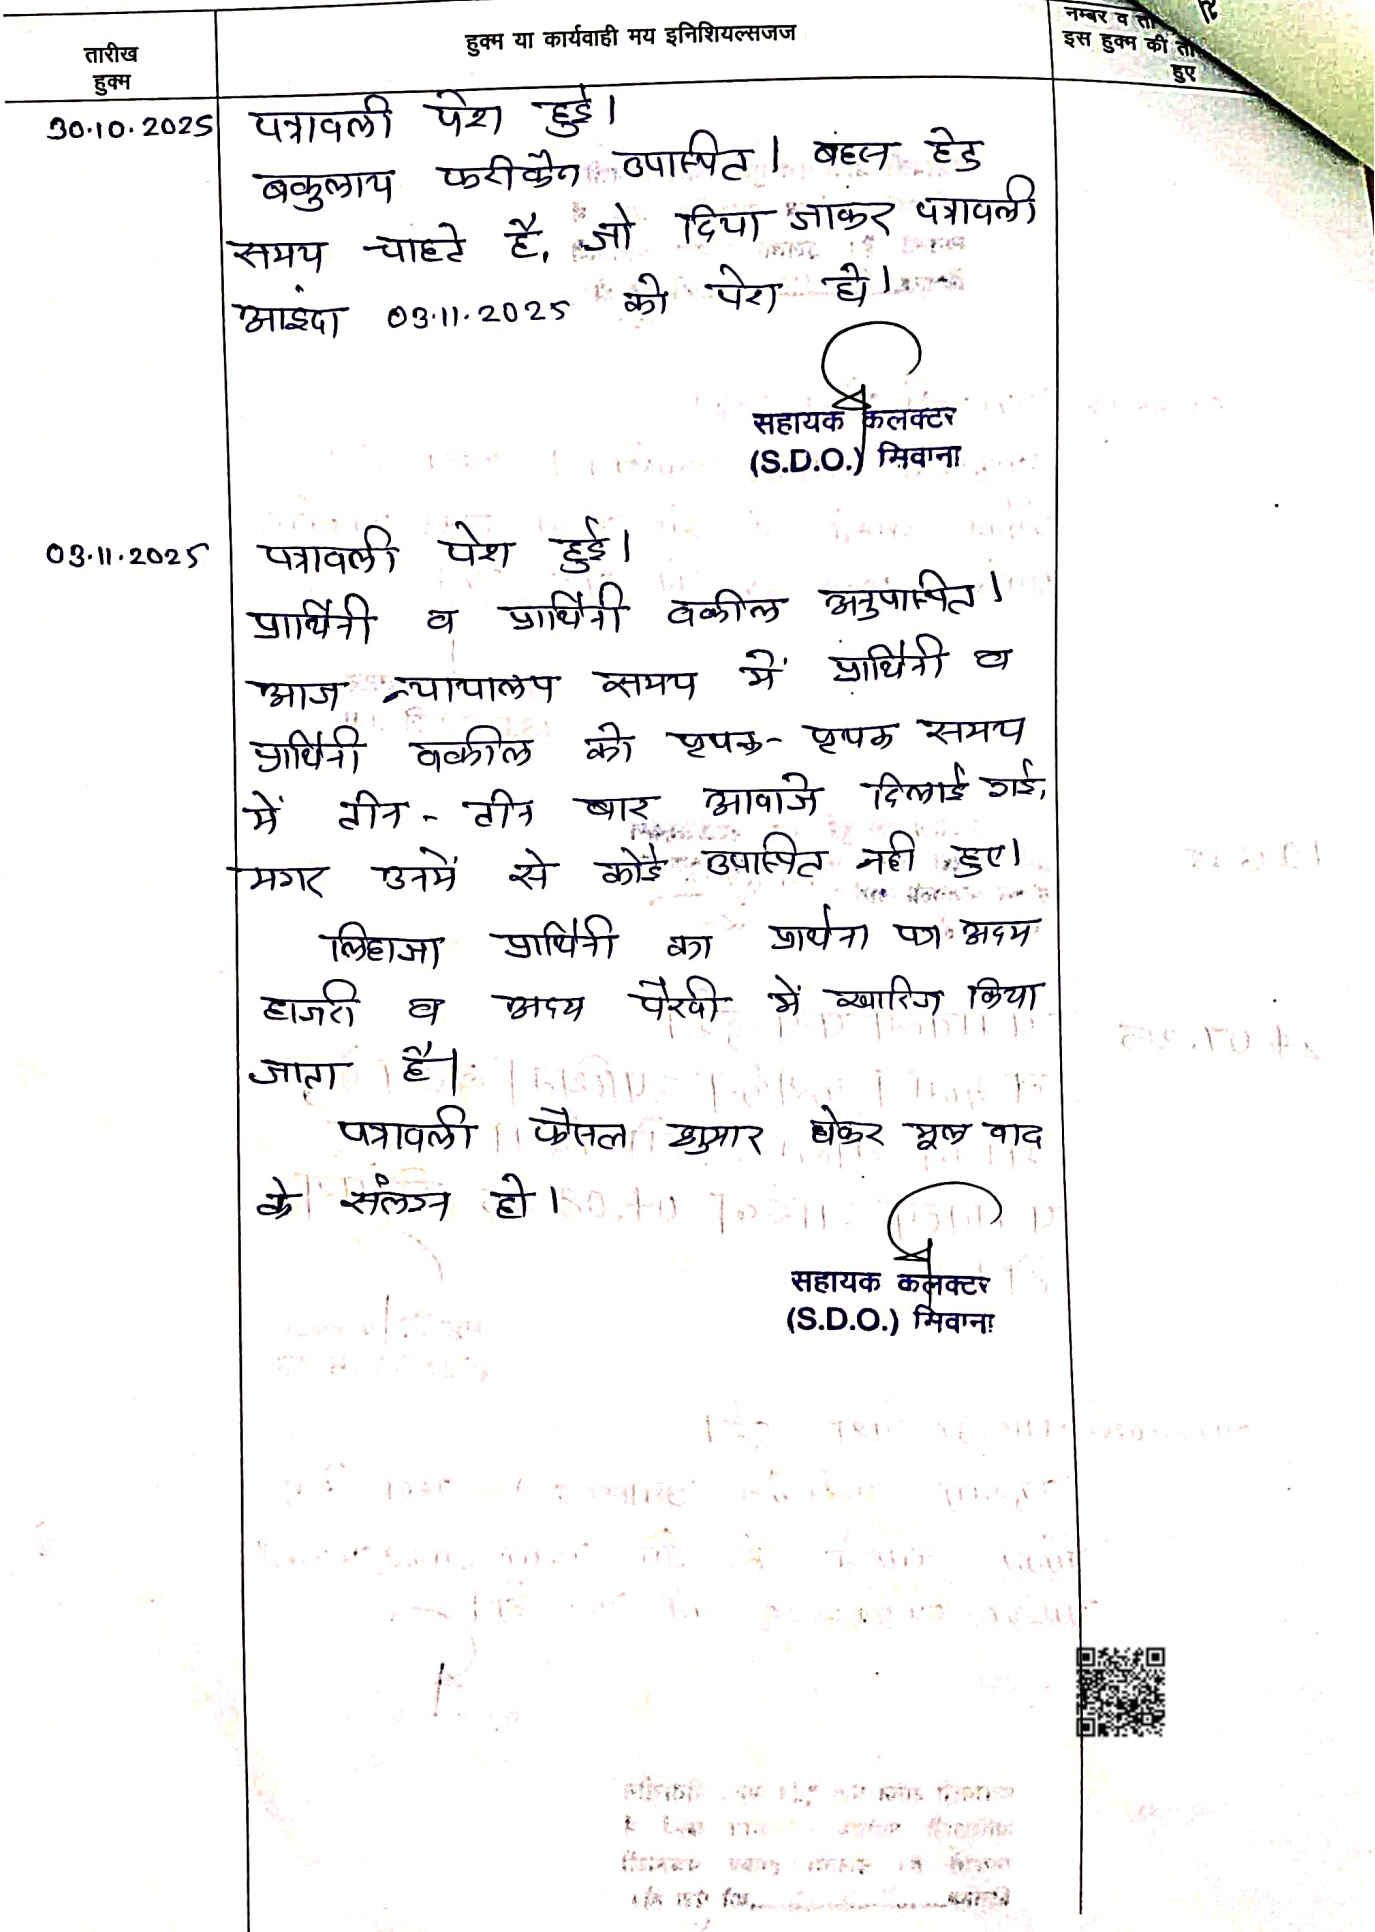 तारीख
हुक्म
हुक्म या कार्यवाही मय इनिशियल्सजज
नम्बर व
इस हुक्म की
हुए
30.10.2025 पत्रावली पेश हुई।
वकुलाय फरीकैन उपस्थित। बहस हेतु
समय चाहते है, जो दिया जाकर पत्रावली
आइंदा 03.11.2025 को पेश हो।
सहायक कलक्टर
(S.D.O.) सिवाना
03.11.2025 पत्रावली पेश हुई।
प्रार्थिनी व प्रार्थिनी वकील अनुपस्थित।
आज न्यायालय समय में प्रार्थिनी व
प्रार्थिनी वकील को पृथक-पृथक समय
में तीन-तीन बार आवाजे दिलाई गई,
मगर उनमें से कोई उपस्थित नही हुए।
लिहाजा प्रार्थिनी का प्रार्थना पत्र अदम
हाजरी व अदम पैरवी में खारिज किया
जाता है।
पत्रावली फैसल शुमार होकर मूल वाद
के संलग्न हो।
सहायक कलक्टर
(S.D.O.) सिवाना